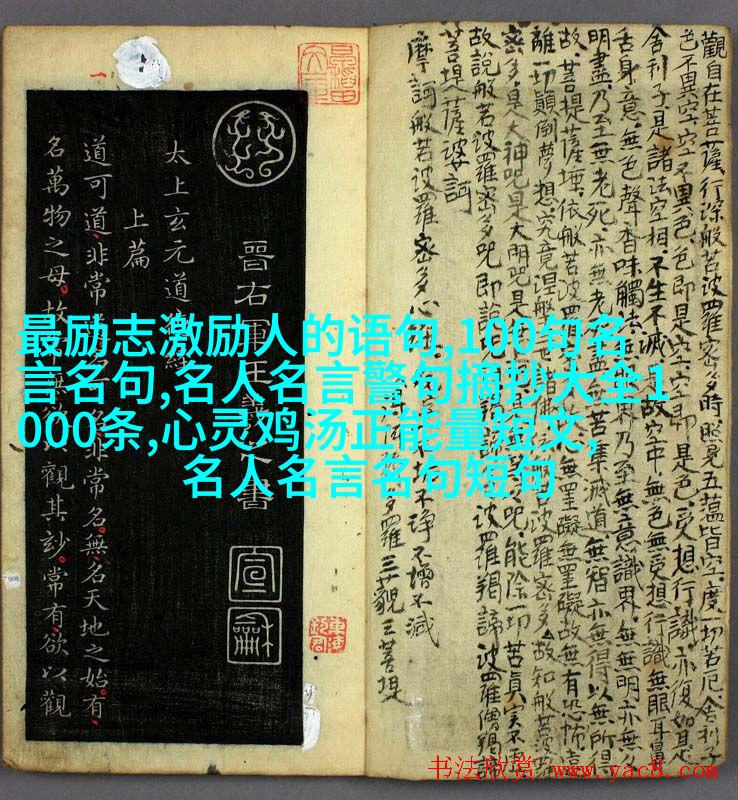 最励志激励人的语句,100句名
言名句,名人名言警句摘抄大全1
000条,心灵鸡汤正能量短文,
名人名言名句短句
觀自在菩薩行深般若波羅密多時照見五蘊皆空度一切苦厄舍利子
色不異空空不異色色即是空空即是色受想行識亦復如是
舍利子是諸法空相不生不滅是故空中無色無受想行識無眼耳鼻
舌身意無色聲香味觸法界乃至無意識界無無明亦無
明盡乃至無老死亦無老苦集滅道無智亦無得以無所得
故菩提薩埵依般若波羅無罣礙無罣礙故無有恐怖遠
離一切顛倒夢想究竟涅羅密多故知般若波
密多是大神咒是大明咒是咒能除一切苦真實不虛
故說般若波羅密多咒即說波羅揭諦波羅僧揭諦
菩提薩婆訶
不淨不增不減
摩訶般若波羅密多心
多羅三藐三菩提
晉右軍王羲之書
太上玄元道
上篇
道可道非常名非常名無名天地之始有
名萬物之母故無欲以觀其玅常有欲以觀
宣
龢
书法欣赏 www.yac8.com